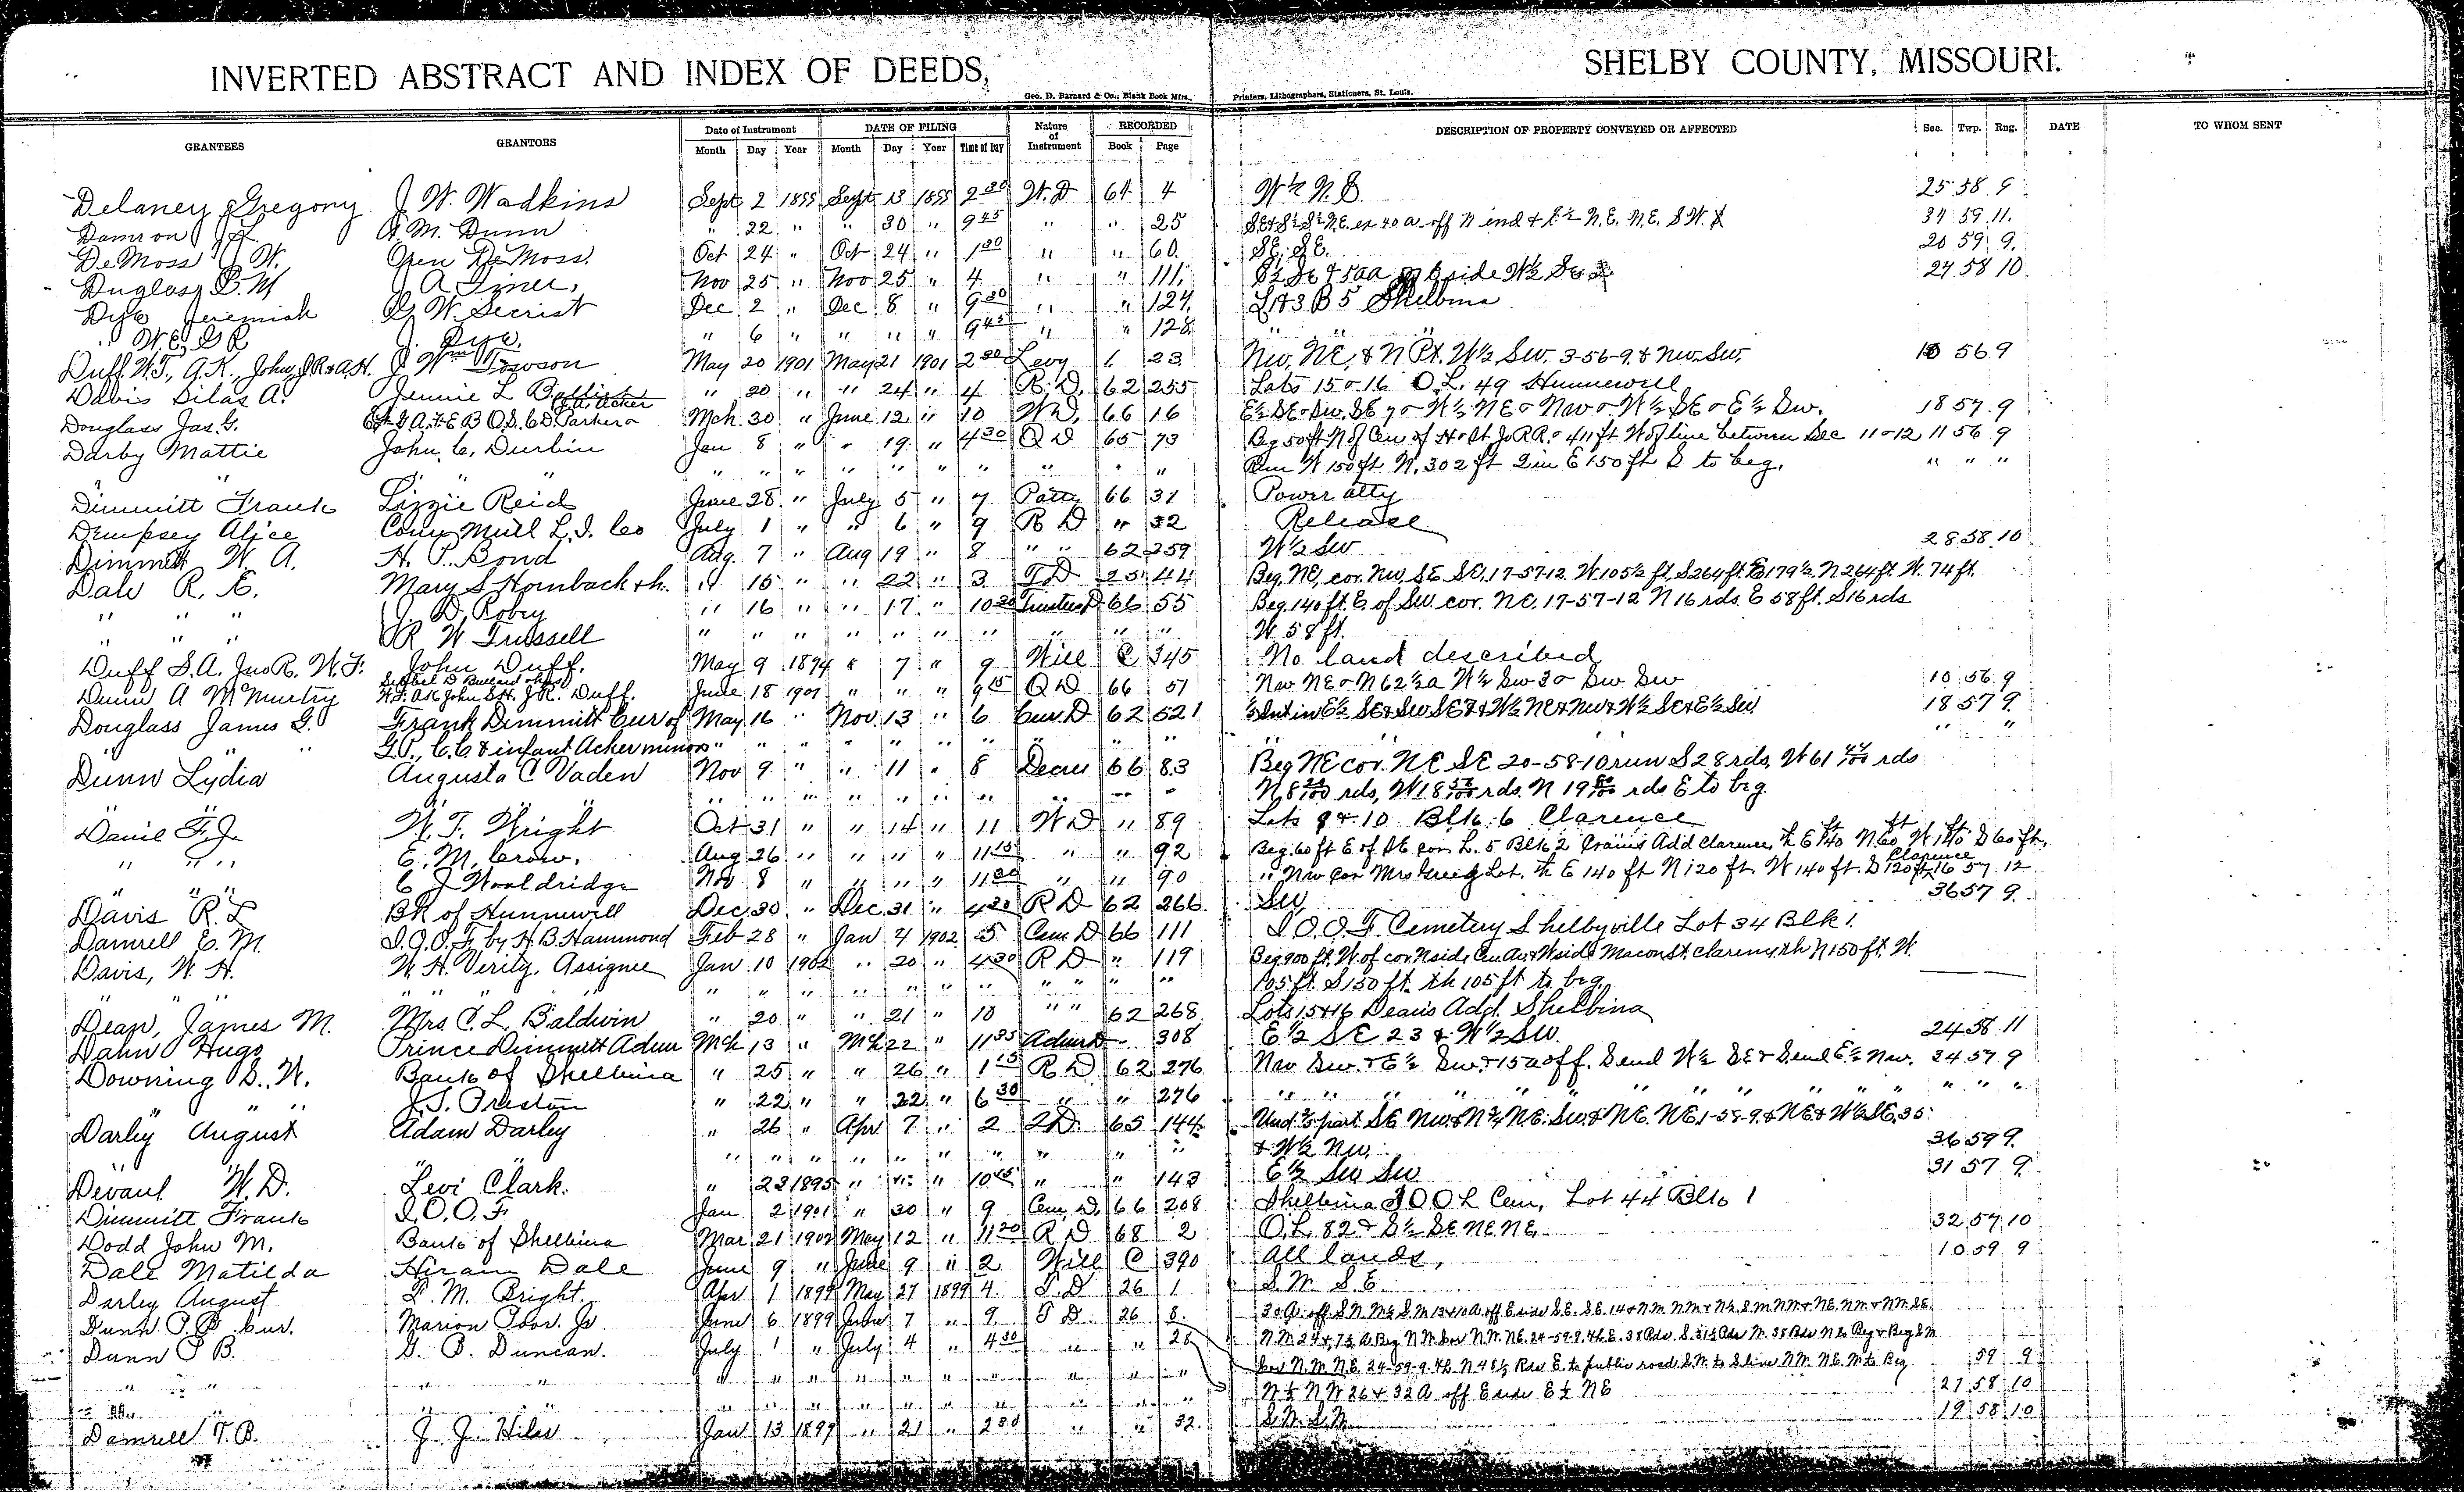 INVERTED ABSTRACT AND INDEX OF DEEDS, SHELBY COUNTY, MISSOURI.
Geo. D. Barnard & Co., Blank Book Mfrs., Printers, Lithographers, Stationers, St. Louis.
GRANTEES GRANTORS Date of Instrument DATE OF FILING Nature of Instrument RECORDED DESCRIPTION OF PROPERTY CONVEYED OR AFFECTED Sec. Twp. Rng. DATE TO WHOM SENT
Month Day Year Month Day Year Time of Day Book Page
Delaney Gregory J. W. Wadkins Sept 2 1899 Sept 13 1899 2 30 W. D 64 4 W½ N.E. 25 58 9
Damron J. M. Dunn " 22 " " 30 " 9 45 " " 25 34 59 11
DeMoss J. W. DeMoss Oct 24 " Oct 24 " 1 30 " " 60 SE, SE. 20 59 9
Duglass B. M J A Tiner Nov 25 " Nov 25 " 4 " " 111 24 58 10
Dye Jeremiah W. Secrist Dec 2 " Dec 8 " 9 30 " " 124 Lt 3 B 5 Shelbina
" W. E, G R J. Dye " 6 " " " " 9 45 " " 128 " " "
Duff W.F., A.K., John, J.R. & A.H. J Wm Towson May 20 1901 May 21 1901 2 30 Levy 1 23 Nw, NE, & N Pt. W½ Sw. 3-56-9. & Nw. Sw. 10 56 9
Davis Silas A. Jennie L " 20 " " 24 " 4 R. D. 62 255 Lots 15 & 16 O.L. 49 Hunnewell
Douglass Jas. G. Mch 30 " June 12 " 10 WD, 66 16 E½ SE & Sw. SE 7 & W½ NE & Nw & W½ SE & E½ Sw. 18 57 9
Darby Mattie John C. Durbin Jan 8 " " 19 " 4 30 Q D 65 73 Beg 50 ft N of Cen of H & St Jo RR. & 411 ft W of line between Sec 11-12 11 56 9
" " " " " " " " " " " " " " " Run W 150 ft N. 302 ft 2 in E 150 ft S to beg. " " "
Dimmitt Frank Lizzie Reid June 28 " July 5 " 7 Patty 66 31 Power atty
Dempsey Alice Conn Mutl L. I. Co July 1 " " 6 " 9 R D " 32 Release
Dimmitt W. A. H. P. Bond Aug. 7 " Aug 19 " 8 " " 62 259 W½ Sw 28 58 10
Dale R. E. Mary S Hornback & h. " 15 " " 22 " 3 T D 25 44 Beg. NE, cor. Nw, SE SE, 17-57-12. W. 105½ ft, S 264 ft. E 179½, N 264 ft. W. 74 ft.
" " " J. D. Robey " 16 " " 17 " 10 30 Trustees D 66 55 Beg. 140 ft. E of Sw. cor. NE, 17-57-12 N 16 rds. E 58 ft. S 16 rds
" " " R W Trussell " " " " " " " " " " W 58 ft.
Duff S.A. Jno R. W.F. John Duff. May 9 1894 " 7 " 9 Will C 345 No land described
Dunn A McMurtry W.F. A K John S.H. J.R. Duff. June 18 1901 " " " 9 15 Q D 66 51 Nw NE & N 62½ a W½ Sw 3 & Sw Sw 10 56 9
Douglass James G. Frank Dimmitt Cur of May 16 " Nov 13 " 6 Cur. D 62 521 Int in E½ SE & Sw SE 7 & W½ NE & Nw & W½ SE & E½ Sw 18 57 9
" " G.P., C.C. & infant Acker minors " " " " " " " " " " " "
Dunn Lydia Augusta C Vaden Nov 9 " " 11 " 8 Decree 66 83 Beg NE cor. NE SE 20-58-10 run S 28 rds, W 61 44/100 rds
" " " " " " " " " " " " N 8 rds, W 18 rds. N 19 rds E to beg.
W. T. Wright Oct 31 " " 14 " 11 WD " 89 Lots 9 & 10 Blk. 6 Clarence
" " " E. M. Crow. Aug 26 " " " " 11 15 " " 92 Beg. 60 ft E of SE cor. L. 5 Blk 2 Crains Add Clarence, th E 140 ft N 60 ft W 140 ft S 60 ft.
" " " E J Wooldridge Nov 8 " " " " 11 30 " " 90 " Nw Cor Mrs Lot, th E 140 ft N 120 ft. W 140 ft. S 120 ft. Clarence 16 57 12
Davis R. L Bk of Hunnewell Dec 30 " Dec 31 " 4 30 R D 62 266 SW 36 57 9
Damrell E. M. I.O.O.F. by H.B. Hammond Feb 28 " Jan 4 1902 5 Cem D 66 111 I.O.O.F Cemetery Shelbyville Lot 34 Blk 1.
Davis, W. H. W. H. Verity, Assignee Jan 10 1902 " 20 " 4 30 R D " 119 Beg 900 ft. W of cor. N side Cen Av & W side Macon St. Clarence, th N 150 ft. W
" " " " " " " " " " " 105 ft. S 150 ft. th 105 ft to beg.
Dean, James M. Mrs. C. L. Baldwin " 20 " " 21 " 10 " " 62 268 Lots 15 & 16 Deans Add. Shelbina
Dahn Hugo Prince Dimmitt Admr Mch 13 " Mch 22 " 11 35 Admr D 308 E½ SE 23 & W½ SW. 24 58 11
Downing S. W. Bank of Shelbina " 25 " " 26 " 1 15 R D 62 276 Nw Sw. & E½ Sw. & 15 a off. S end W½ SE & S end E½ Nw. 24 57 9
" " " J. S. Preston " 22 " " 22 " 6 30 " " 276 " " " " " " " " "
Darley August Adam Darley " 26 " Apr 7 " 2 2D. 65 144 Und ⅔ part SE Nw. & N¾ N.E. Sw. & NE. NE, 1-58-9. & NE & W½ SE, 35
" " " " " " " " " " " & W½ Nw. 36 59 9
Devaul W. D. Levi Clark. " 23 1895 " " " 10 45 " " 143 E½ Sw Sw 31 57 9
Dimmitt Frank I.O.O.F Jan 2 1901 " 30 " 9 Cem. D. 66 208 Shelbina Cem, Lot 44 Blk 1
Dodd John M. Bank of Shelbina Mar 21 1902 May 12 " 11 20 R D 68 2 O.L. 82 & S½ SE NE NE 32 57 10
Dale Matilda Hiram Dale June 9 " June 9 " 2 Will C 390 All lands, 10 59 9
Darley August M. Bright. Apr 1 1899 May 27 1899 4 T. D 26 1 S.W. S.E.
Dunn P. B. cur. Marion June 6 1899 June 7 " 9 T D. 26 8
Dunn P B. B. Duncan. July 1 " July 4 " 4 30 " " 28
" " " " " " " " " " " 59 9
" " " " " " " " " " N½ N W 26 & 32 A off E side E½ NE 27 58 10
Damrell T. B. J. J. Hiles Jan 13 1899 " 21 " 2 30 " " 32. S.W. S.W. 19 58 10